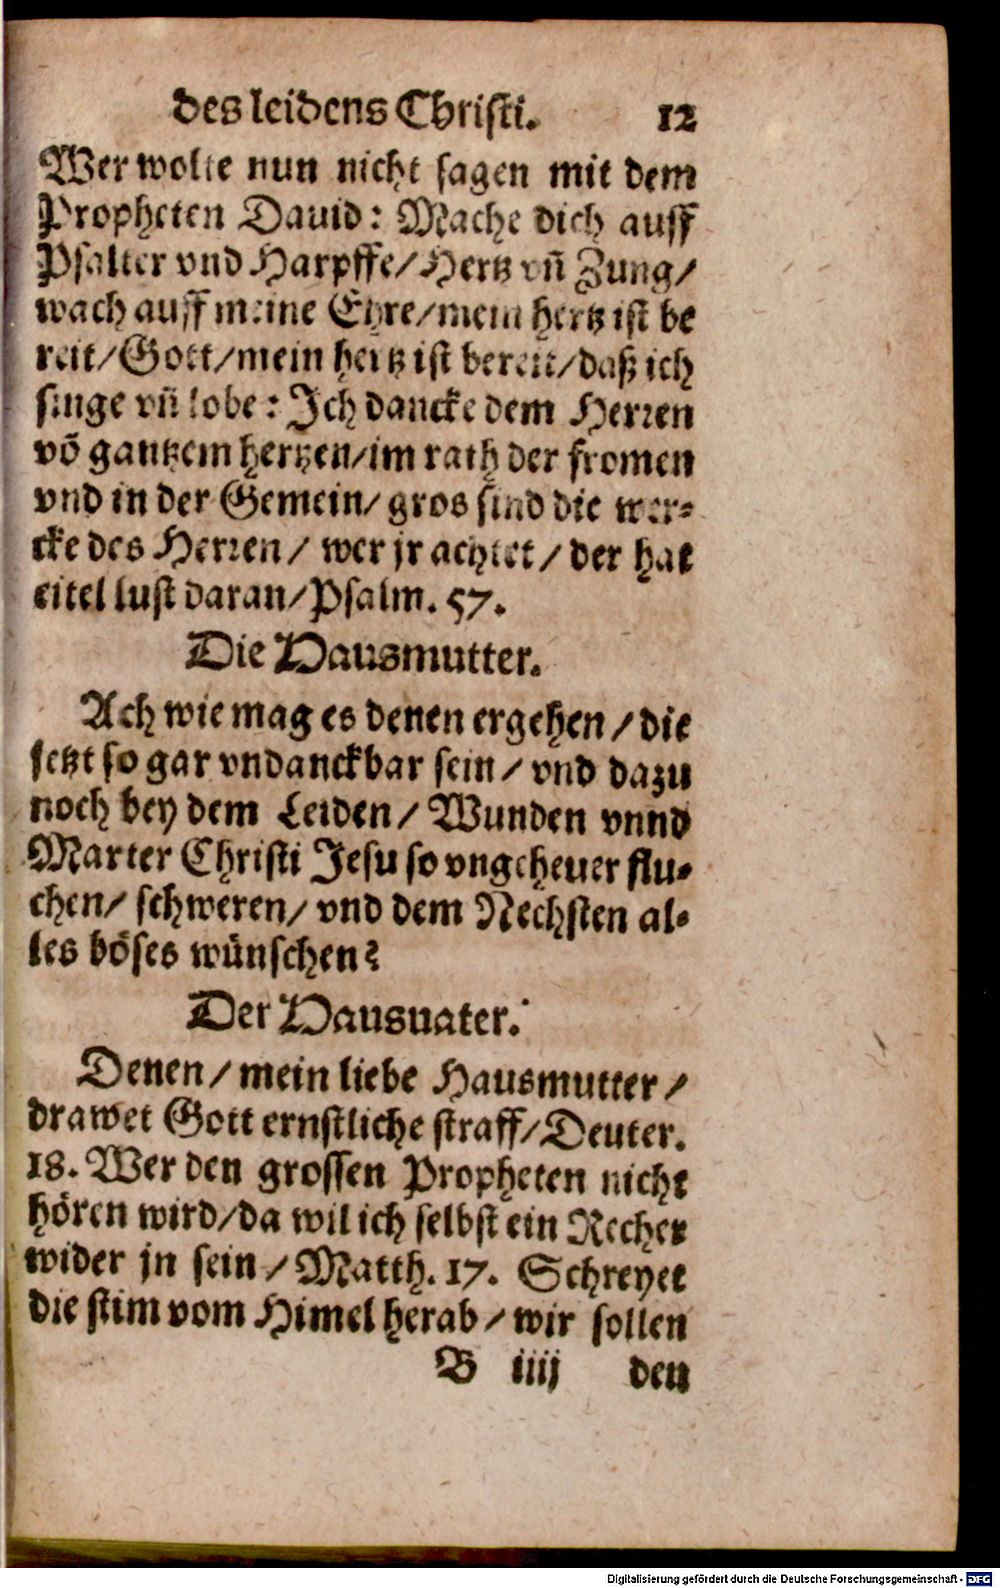 des leidens Christi. 12
Wer wolte nun nicht sagen mit dem
Propheten Dauid: Mache dich auff
Psalter vnd Harpffe/Hertz vñ Zung/
wach auff meine Ehre/mein hertz ist be
reit/Gott/mein hertz ist bereit/daß ich
singe vñ lobe: Ich dancke dem Herren
võ gantzem hertzen/im rath der fromen
vnd in der Gemein/ gros sind die wer-
cke des Herren/ wer jr achtet/ der hat
eitel lust daran/Psalm. 57.
Die Hausmutter.
Ach wie mag es denen ergehen/ die
jetzt so gar vndanckbar sein/ vnd dazu
noch bey dem Leiden/ Wunden vnnd
Marter Christi Jesu so vngeheuer flu-
chen/ schweren/ vnd dem Nechsten al-
les böses wünschen?
Der Hausuater.
Denen/ mein liebe Hausmutter/
drawet Gott ernstliche straff/Deuter.
18. Wer den grossen Propheten nicht
hören wird/da wil ich selbst ein Recher
wider jn sein/ Matth. 17. Schreyet
die stim vom Himel herab/ wir sollen
B iiij den
Digitalisierung gefördert durch die Deutsche Forschungsgemeinschaft - DFG